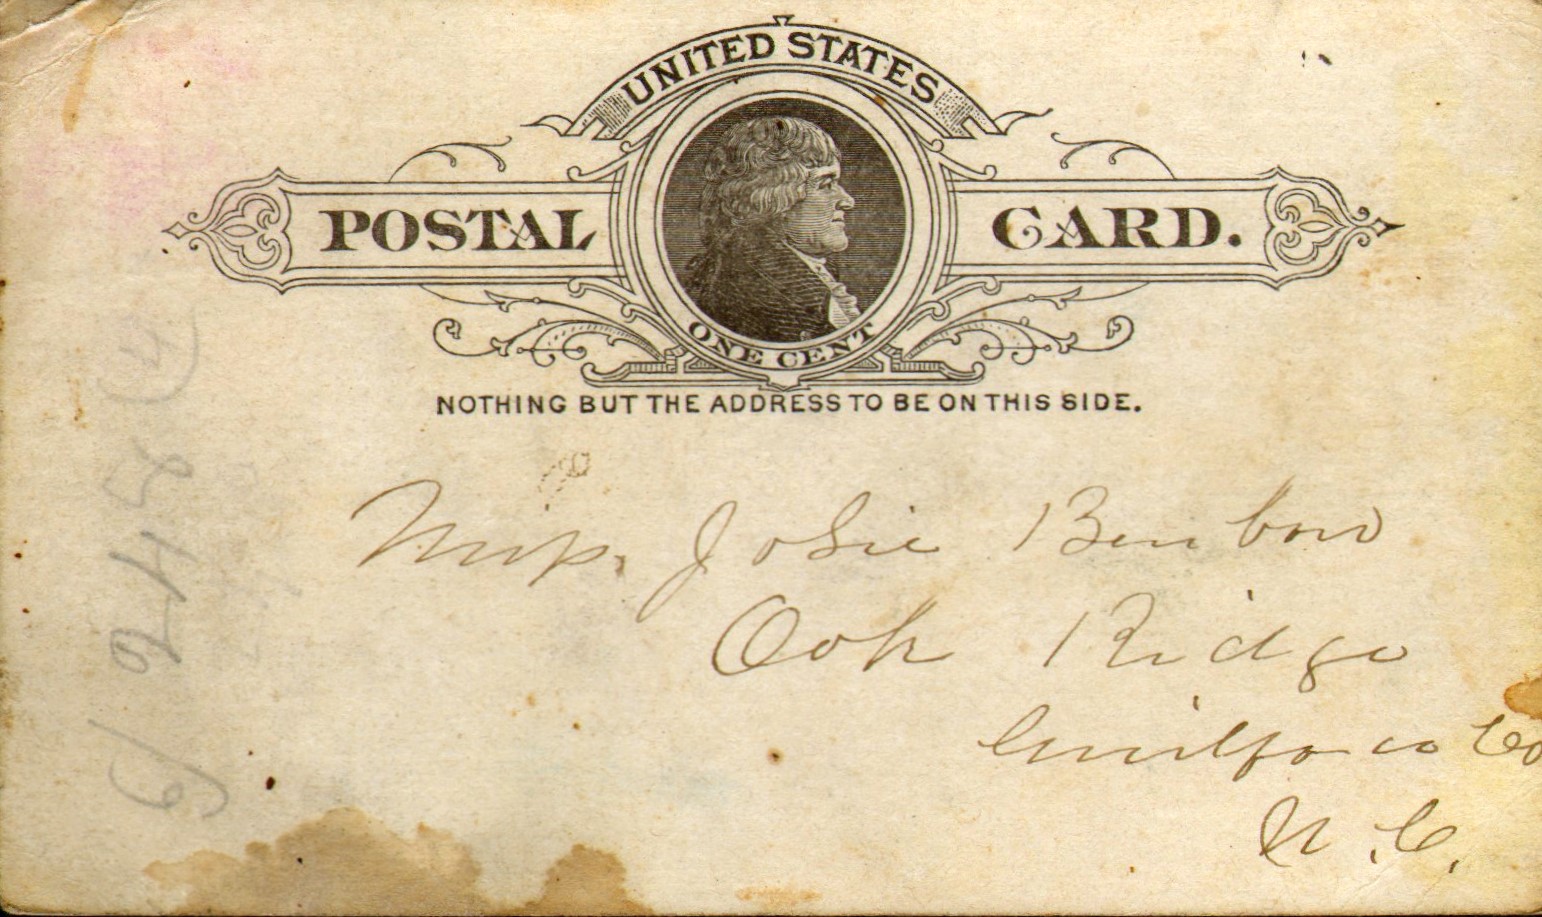 UNITED STATES
POSTAL CARD.
ONE CENT
NOTHING BUT THE ADDRESS TO BE ON THIS SIDE.
Miss. Josie Benbow
Oak Ridge
Guilford Co
N.C.